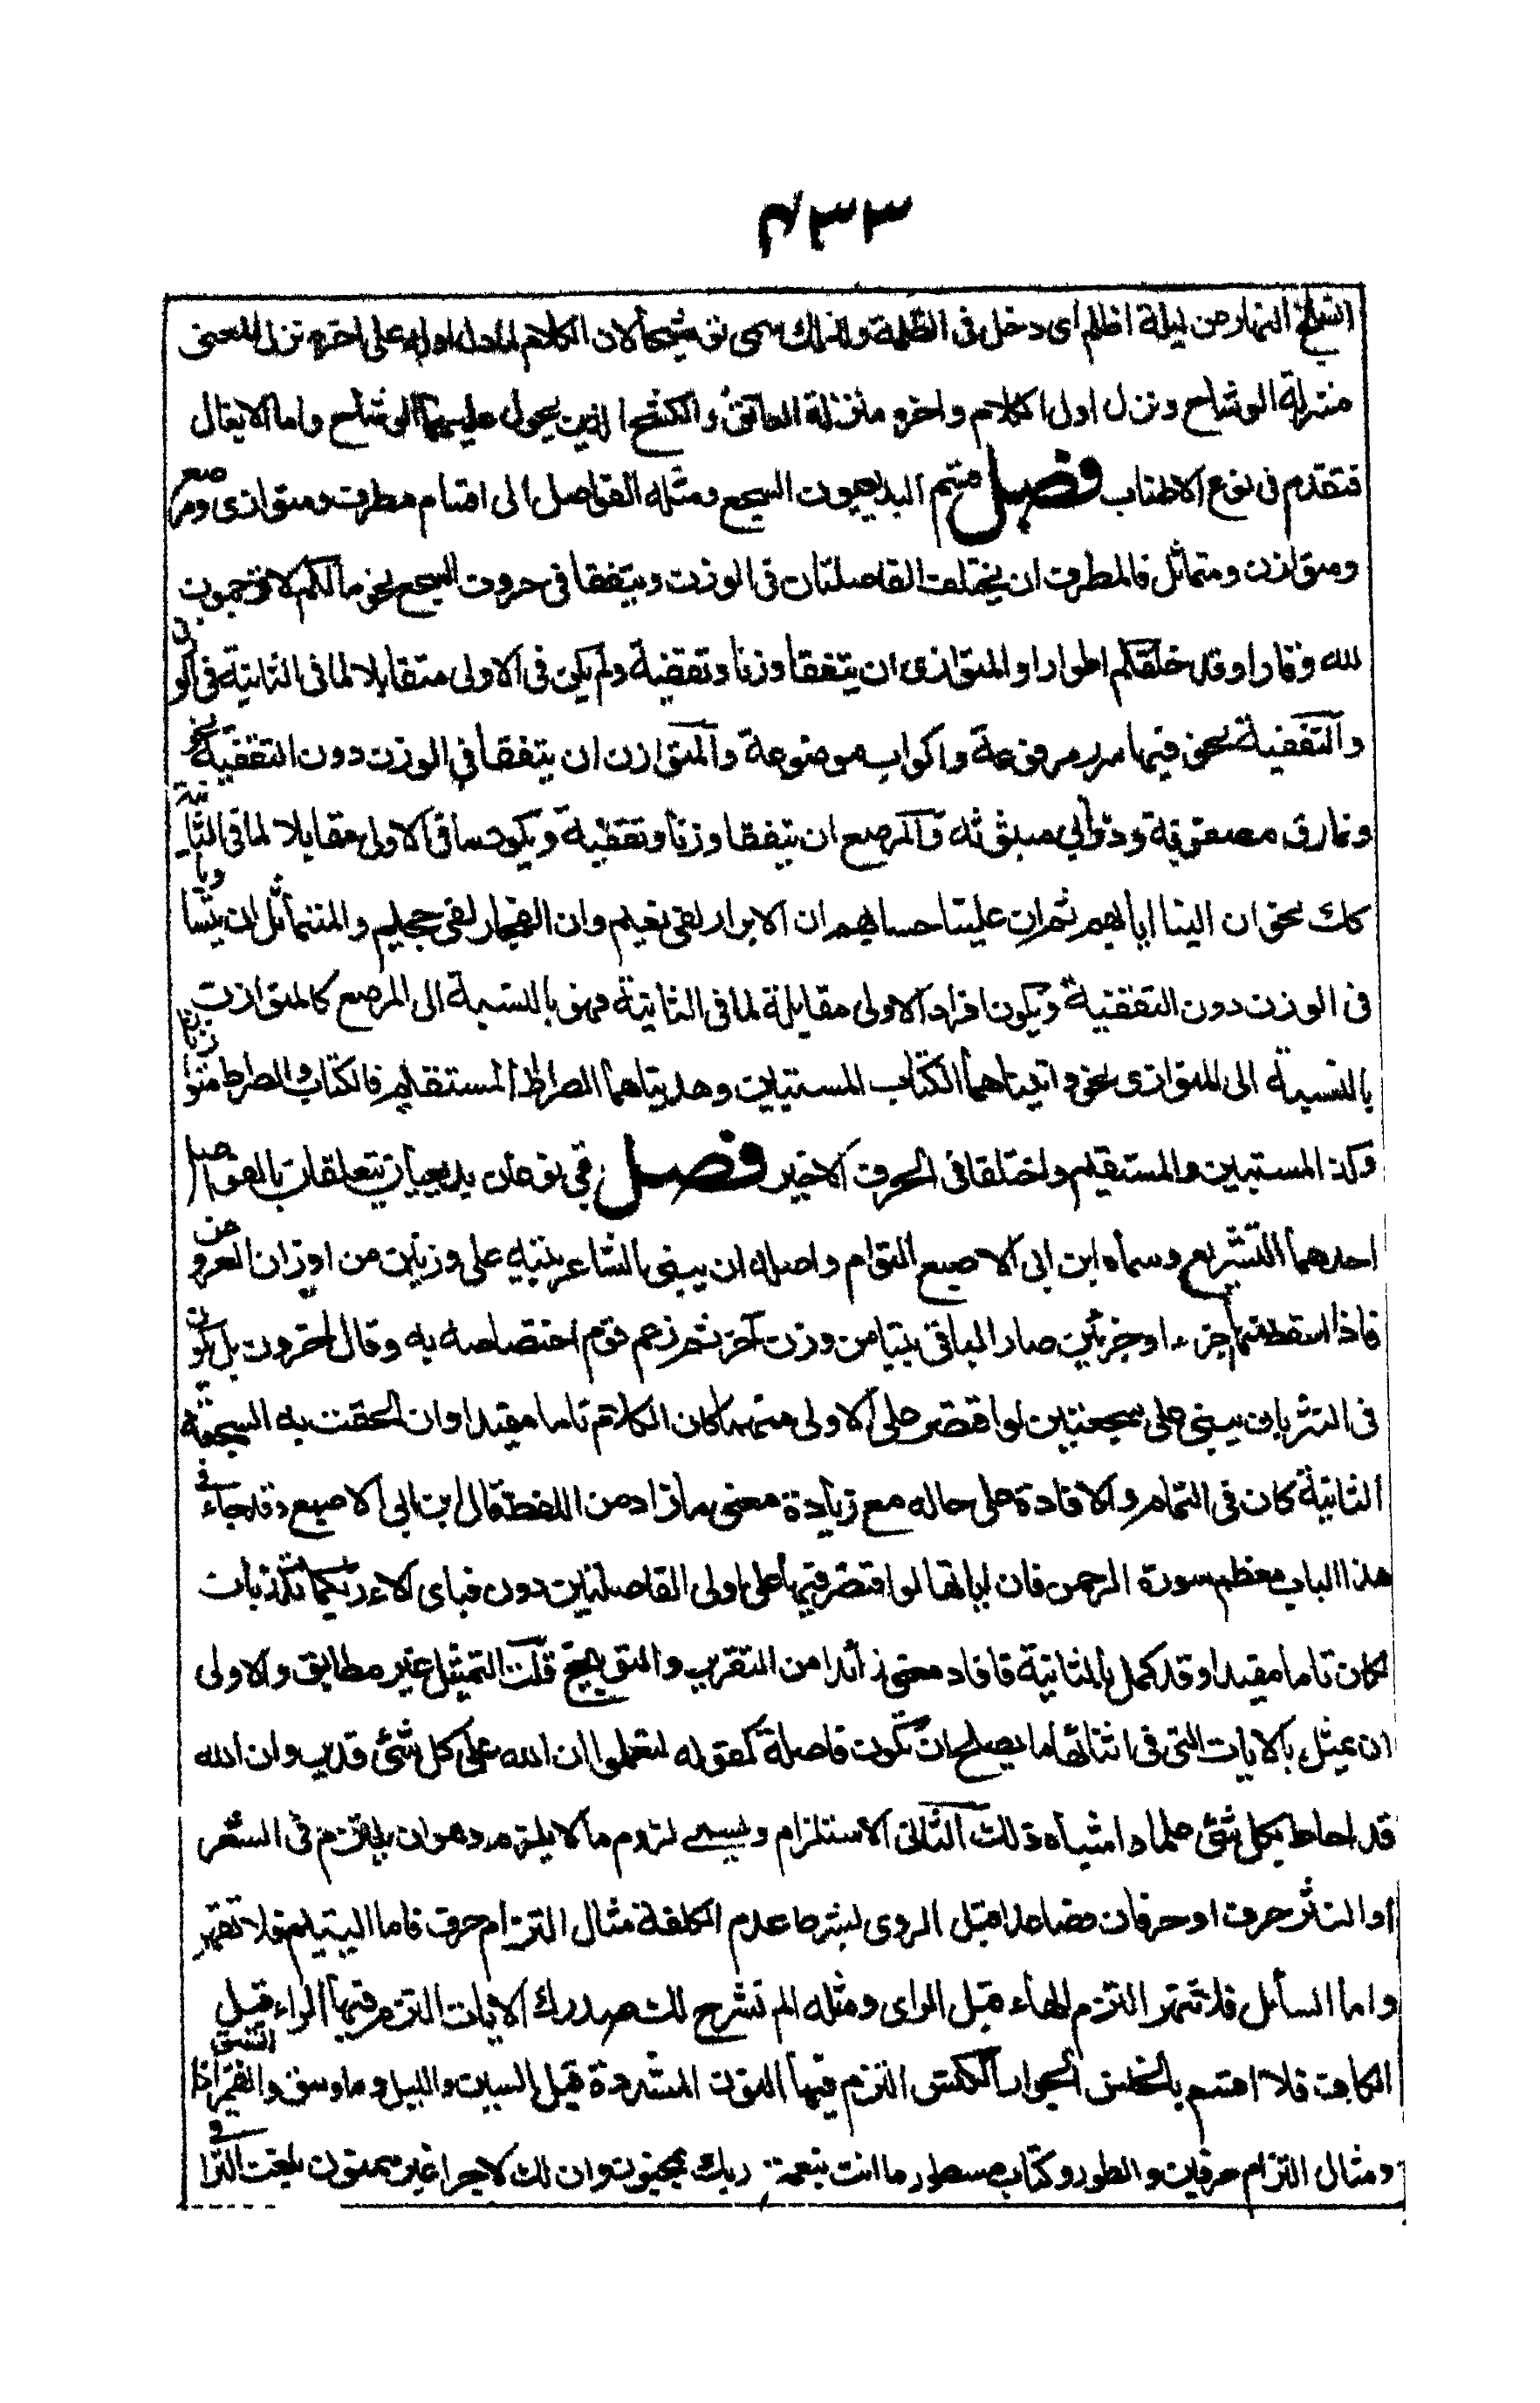 ٤٣٣
انسلخ النهار من ليلة اظلم اى دخل فى الظلمة ولذلك سمى توشيحا لان الكلام لما دل اوله على اخره نزل المعنى
منزلة الوشاح ونزل اول الكلام واخره منزلة العاتق والكشح الذين يحول عليهما الوشاح واما الايغال
فتقدم فى نوع الاطناب فصل قسم البديعيون السجع ومثله الفواصل الى اقسام مطرف ومتوازى ومرصع
ومتوازن ومتماثل فالمطرف ان يختلف الفاصلتان فى الوزن ويتفقا فى حروف السجع نحو مالكم لا ترجون
لله وقارا وقد خلقكم اطوارا والمتوازى ان يتفقا وزنا وتقفية ولم يكن فى الاولى متقابلا لما فى الثانية فى الوزن
والتقفية نحو فيها سرر مرفوعة واكواب موضوعة والمتوازن ان يتفقا فى الوزن دون التقفية نحو
ونمارق مصفوفة وزرابى مبثوثة والمرصع ان يتفقا وزنا وتقفية ويكون ما فى الاولى مقابلا لما فى الثانية
كك نحو ان الينا ايابهم ثم ان علينا حسابهم ان الابرار لفى نعيم وان الفجار لفى جحيم والمتماثل ان يتساويا
فى الوزن دون التقفية ويكون افراد الاولى مقابلة لما فى الثانية فهو بالنسبة الى المرصع كالمتوازن
بالنسبة الى المتوازى نحو واتيناهما الكتاب المستبين وهديناهما الصراط المستقيم فالكتاب والصراط متوازنان
وكذا المستبين والمستقيم واختلفا فى الحرف الاخير فصل فى نوعان بديعيان يتعلقان بالفواصل
احدهما التشريع وسماه ابن ابى الاصبع التوام واصله ان يبنى الشاعر بيته على وزنين من اوزان العروض
فاذا اسقط منها جزء او جزئين صار الباقى بيتا من وزن آخر ثم زعم قوم اختصاصه به وقال اخرون بل يكون
فى النثر بان يبنى على سجعتين لو اقتصر على الاولى منهما كان الكلام تاما مفيدا وان الحقت به السجعة
الثانية كان فى التمام والافادة على حاله مع زيادة معنى ما زاد من اللفظ قال ابن ابى الاصبع وقد جاء فى
هذا الباب معظم سورة الرحمن فان اياتها لو اقتصر فيها على اولى الفاصلتين دون فباى الاء ربكما تكذبان
لكان تاما مفيدا وقد كمل بالثانية فافاد معنى زائدا من التقرير والتوبيخ قلت التمثيل غير مطابق والاولى
ان يمثل بالايات التى فى اثنائها ما يصلح ان تكون فاصلة كقوله لتعلموا ان الله على كل شئ قدير وان الله
قد احاط بكل شئ علما واشباه ذلك الثانى الاستلزام ويسمى لزوم ما لا يلزم وهو ان يلتزم فى الشعر
او النثر حرف او حرفان فصاعدا قبل الروى بشرط عدم الكلفة مثال التزام حرف فاما اليتيم فلا تقهر
واما السائل فلا تنهر التزم الهاء قبل الراى ومثله الم نشرح لك صدرك الايات التزم فيها الراء قبل
الكاف فلا اقسم بالخنس الجوار الكنس التزم فيها النون المشددة قبل السين والليل وما وسق والقمر اذا اتسق
ومثال التزام حرفين والطور وكتاب مسطور ما انت بنعمة ربك بمجنون وان لك لاجرا غير ممنون بلغت التراقى